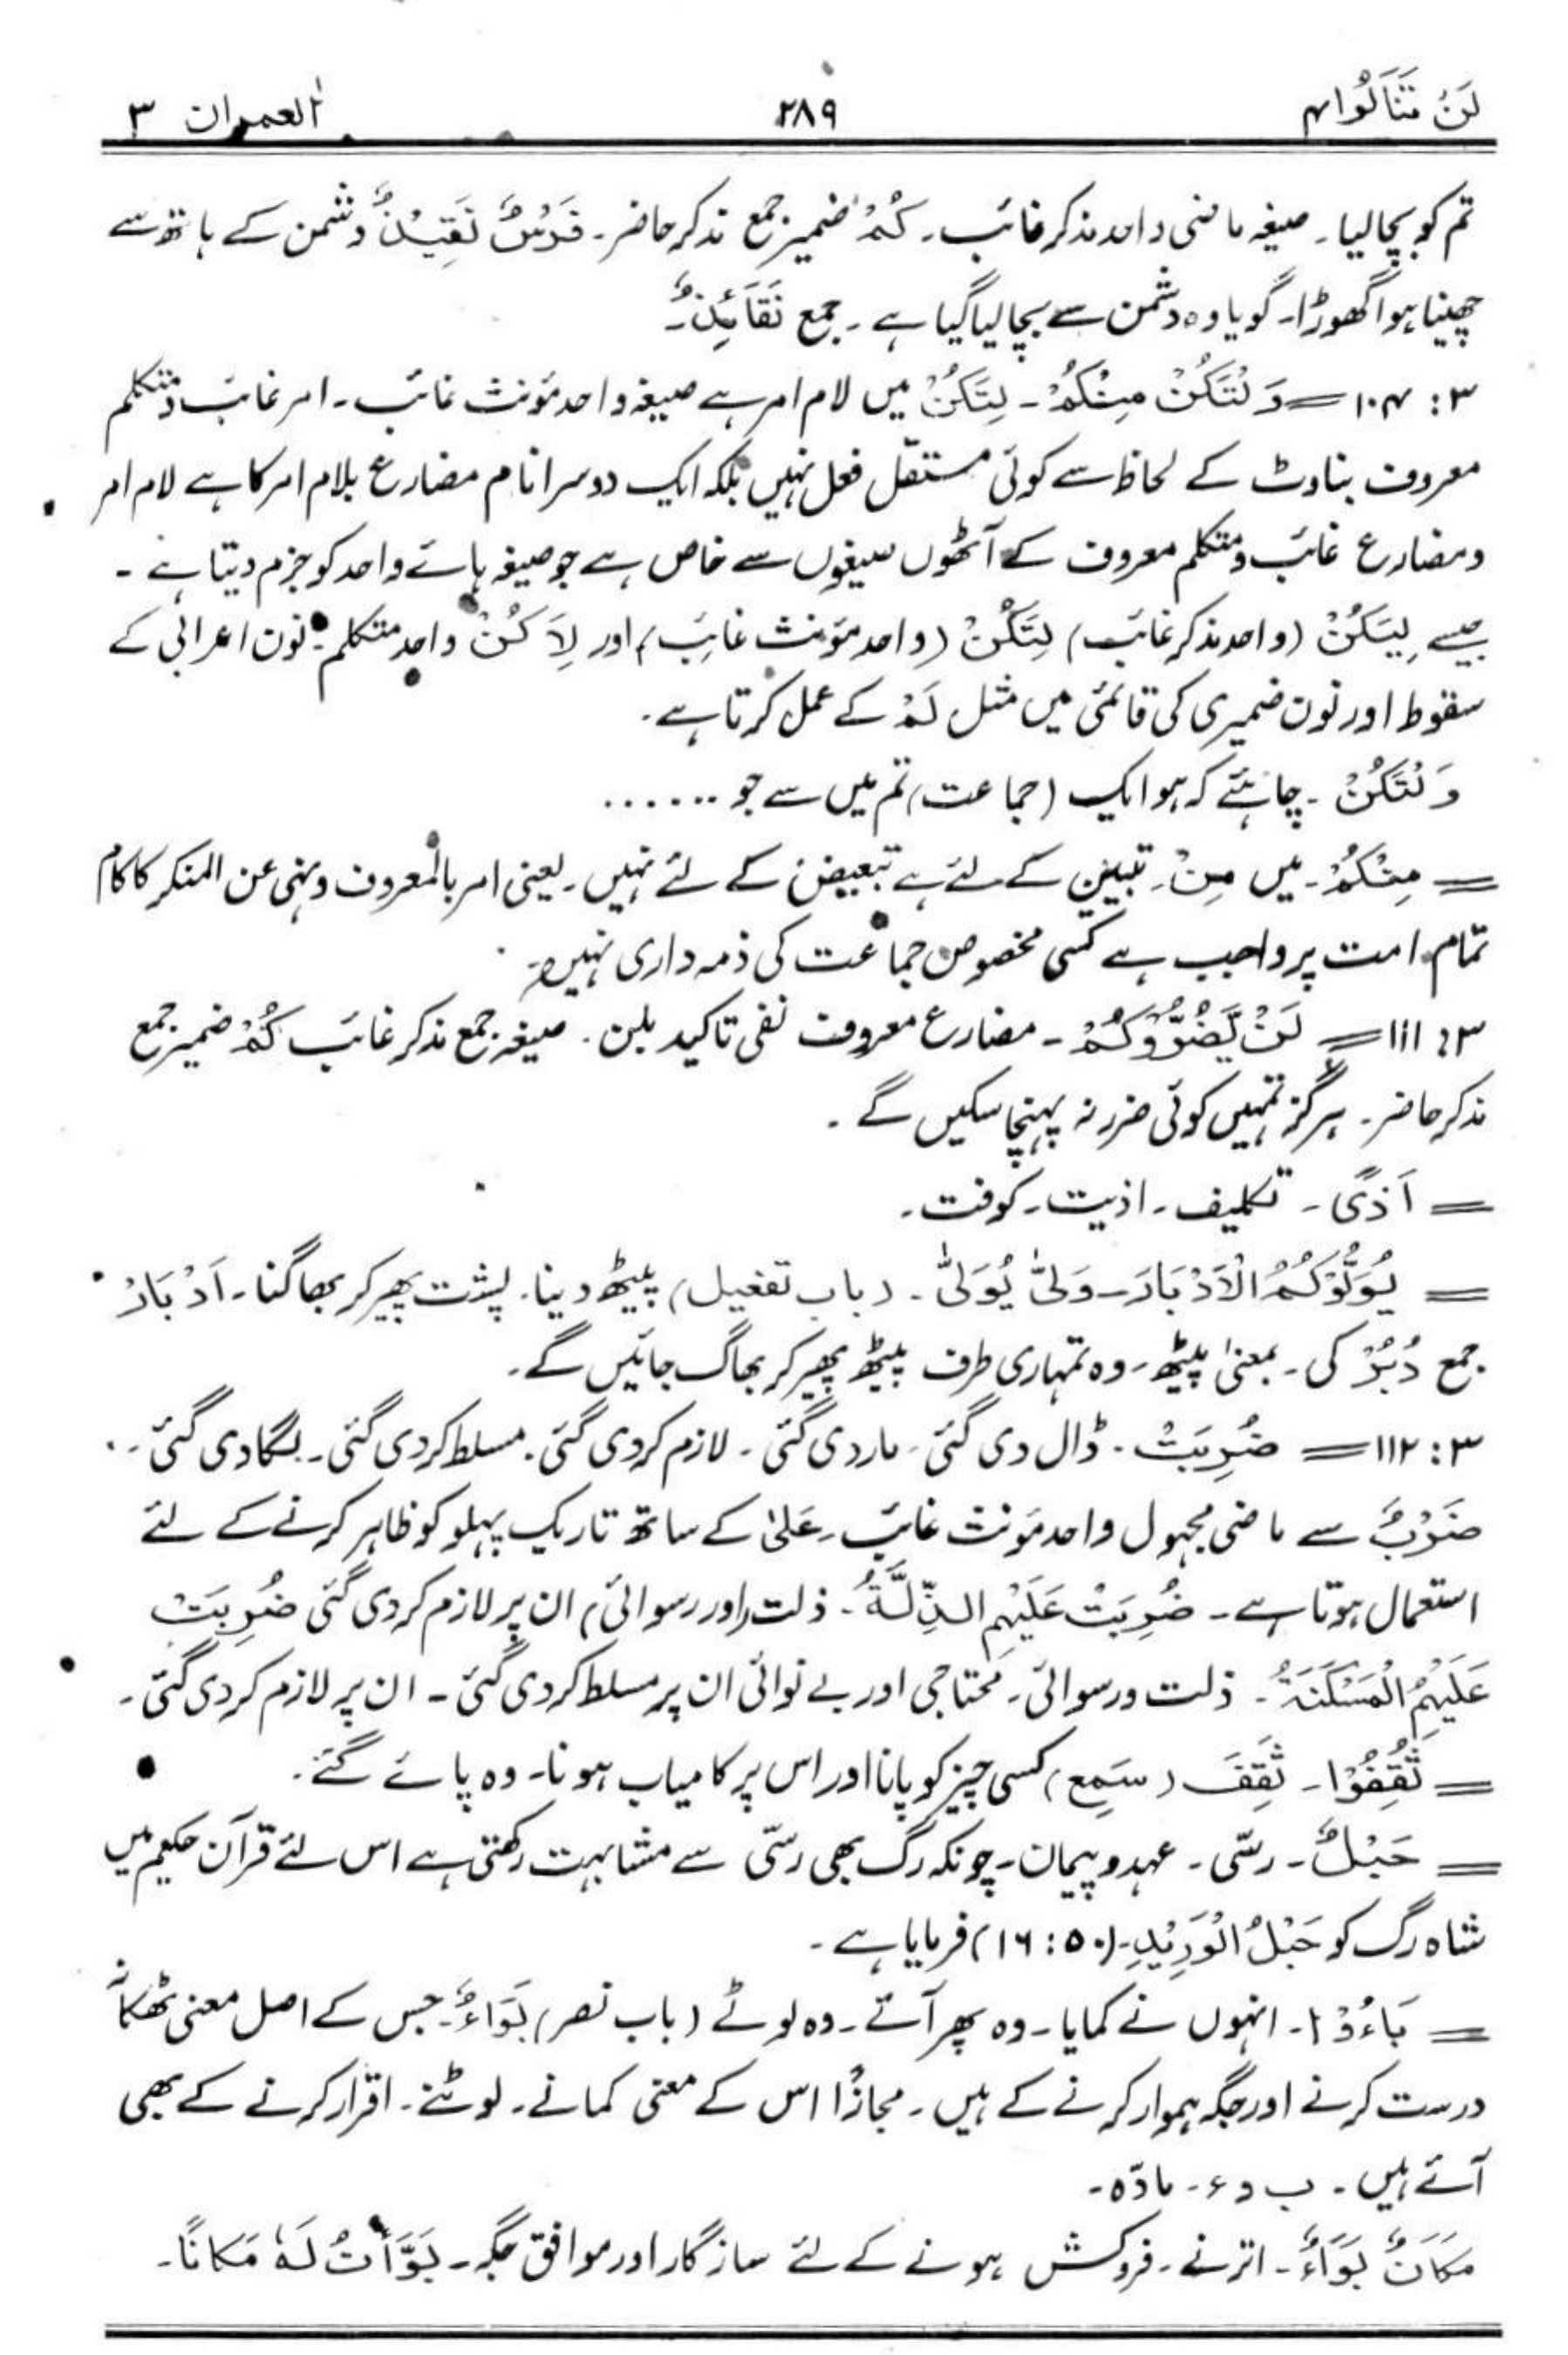 لَنْ تَنَالُوا ۴ ۲۸۹ اٰل عمران ۳
تم کو بچالیا۔ صیغہ ماضی واحد مذکر غائب۔ کُمْ ضمیر جمع مذکر حاضر۔ فَرَسٌ نَقِیْذٌ دشمن کے ہاتھ سے
چھینا ہوا گھوڑا۔ گویا وہ دشمن سے بچالیا گیا ہے۔ جمع نَقَائِذُ۔
۳: ۱۰۴ = وَلْتَکُنْ مِنْکُمْ۔ لِتَکُنْ میں لام امر ہے صیغہ واحد مؤنث غائب۔ امر غائب و متکلم
معروف بناوٹ کے لحاظ سے کوئی مستقل فعل نہیں بلکہ ایک دوسرا نام مضارع بلام امر کا ہے لام امر
و مضارع غائب و متکلم معروف کے آٹھوں صیغوں سے خاص ہے جو صیغہ ہائے واحد کو جزم دیتا ہے۔
جیسے لِیَکُنْ (واحد مذکر غائب) لِتَکُنْ (واحد مؤنث غائب) اور لِاَکُنْ واحد متکلم۔ نون اعرابی کے
سقوط اور نون ضمیری کی قائمی میں مثل لَمْ کے عمل کرتا ہے۔
وَلْتَکُنْ۔ چاہئے کہ ہو ایک (جماعت) تم میں سے جو ......
= مِنْکُمْ۔ میں مِنْ۔ تبیین کے لئے ہے تبعیض کے لئے نہیں۔ یعنی امر بالمعروف و نہی عن المنکر کا کام
تمام امت پر واجب ہے کسی مخصوص جماعت کی ذمہ داری نہیں۔
۳: ۱۱۱ = لَنْ یَّضُرُّوْکُمْ۔ مضارع معروف نفی تاکید بلن۔ صیغہ جمع مذکر غائب کُمْ ضمیر جمع
مذکر حاضر۔ ہرگز تمہیں کوئی ضرر نہ پہنچا سکیں گے۔
= اَذًی۔ تکلیف۔ اذیت۔ کوفت۔
= یُوَلُّوْکُمُ الْاَدْبَارَ۔ وَلّٰی یُوَلّٰی۔ (باب تفعیل) پیٹھ دینا۔ پشت پھیر کر بھاگنا۔ اَدْبَارْ
جمع دُبُرْ کی۔ بمعنٰی پیٹھ۔ وہ تمہاری طرف پیٹھ پھیر کر بھاگ جائیں گے۔
۳: ۱۱۲ = ضُرِبَتْ۔ ڈال دی گئی۔ مار دی گئی۔ لازم کر دی گئی۔ مسلط کر دی گئی۔ لگا دی گئی۔
ضَرْبٌ سے ماضی مجہول واحد مؤنث غائب۔ عَلٰی کے ساتھ تاریک پہلو کو ظاہر کرنے کے لئے
استعمال ہوتا ہے۔ ضُرِبَتْ عَلَیْھِمُ الذِّلَّۃُ۔ ذلت (اور رسوائی) ان پر لازم کر دی گئی ضُرِبَتْ
عَلَیْھِمُ الْمَسْکَنَۃُ۔ ذلت و رسوائی۔ محتاجی اور بے نوائی ان پر مسلط کر دی گئی۔ ان پر لازم کر دی گئی۔
= ثُقِفُوْا۔ ثَقِفَ (سَمِعَ) کسی چیز کو پانا اور اس پر کامیاب ہونا۔ وہ پائے گئے۔
= حَبْلٌ۔ رسّی۔ عہد و پیمان۔ چونکہ رگ بھی رسّی سے مشابہت رکھتی ہے اس لئے قرآن حکیم میں
شاہ رگ کو حَبْلُ الْوَرِیْدِ۔ (۵۰: ۱۶) فرمایا ہے۔
= بَاءُوْا۔ انہوں نے کمایا۔ وہ پھر آئے۔ وہ لوٹے (باب نصر) بَوَاءٌ۔ جس کے اصل معنی ٹھکانہ
درست کرنے اور جگہ ہموار کرنے کے ہیں۔ مجازًا اس کے معنی کمانے۔ لوٹنے۔ اقرار کرنے کے بھی
آتے ہیں۔ ب و ء۔ مادّہ۔
مَکَانٌ بَوَاءٌ۔ اترنے۔ فروکش ہونے کے لئے سازگار اور موافق جگہ۔ بَوَّأْتُ لَہٗ مَکَانًا۔